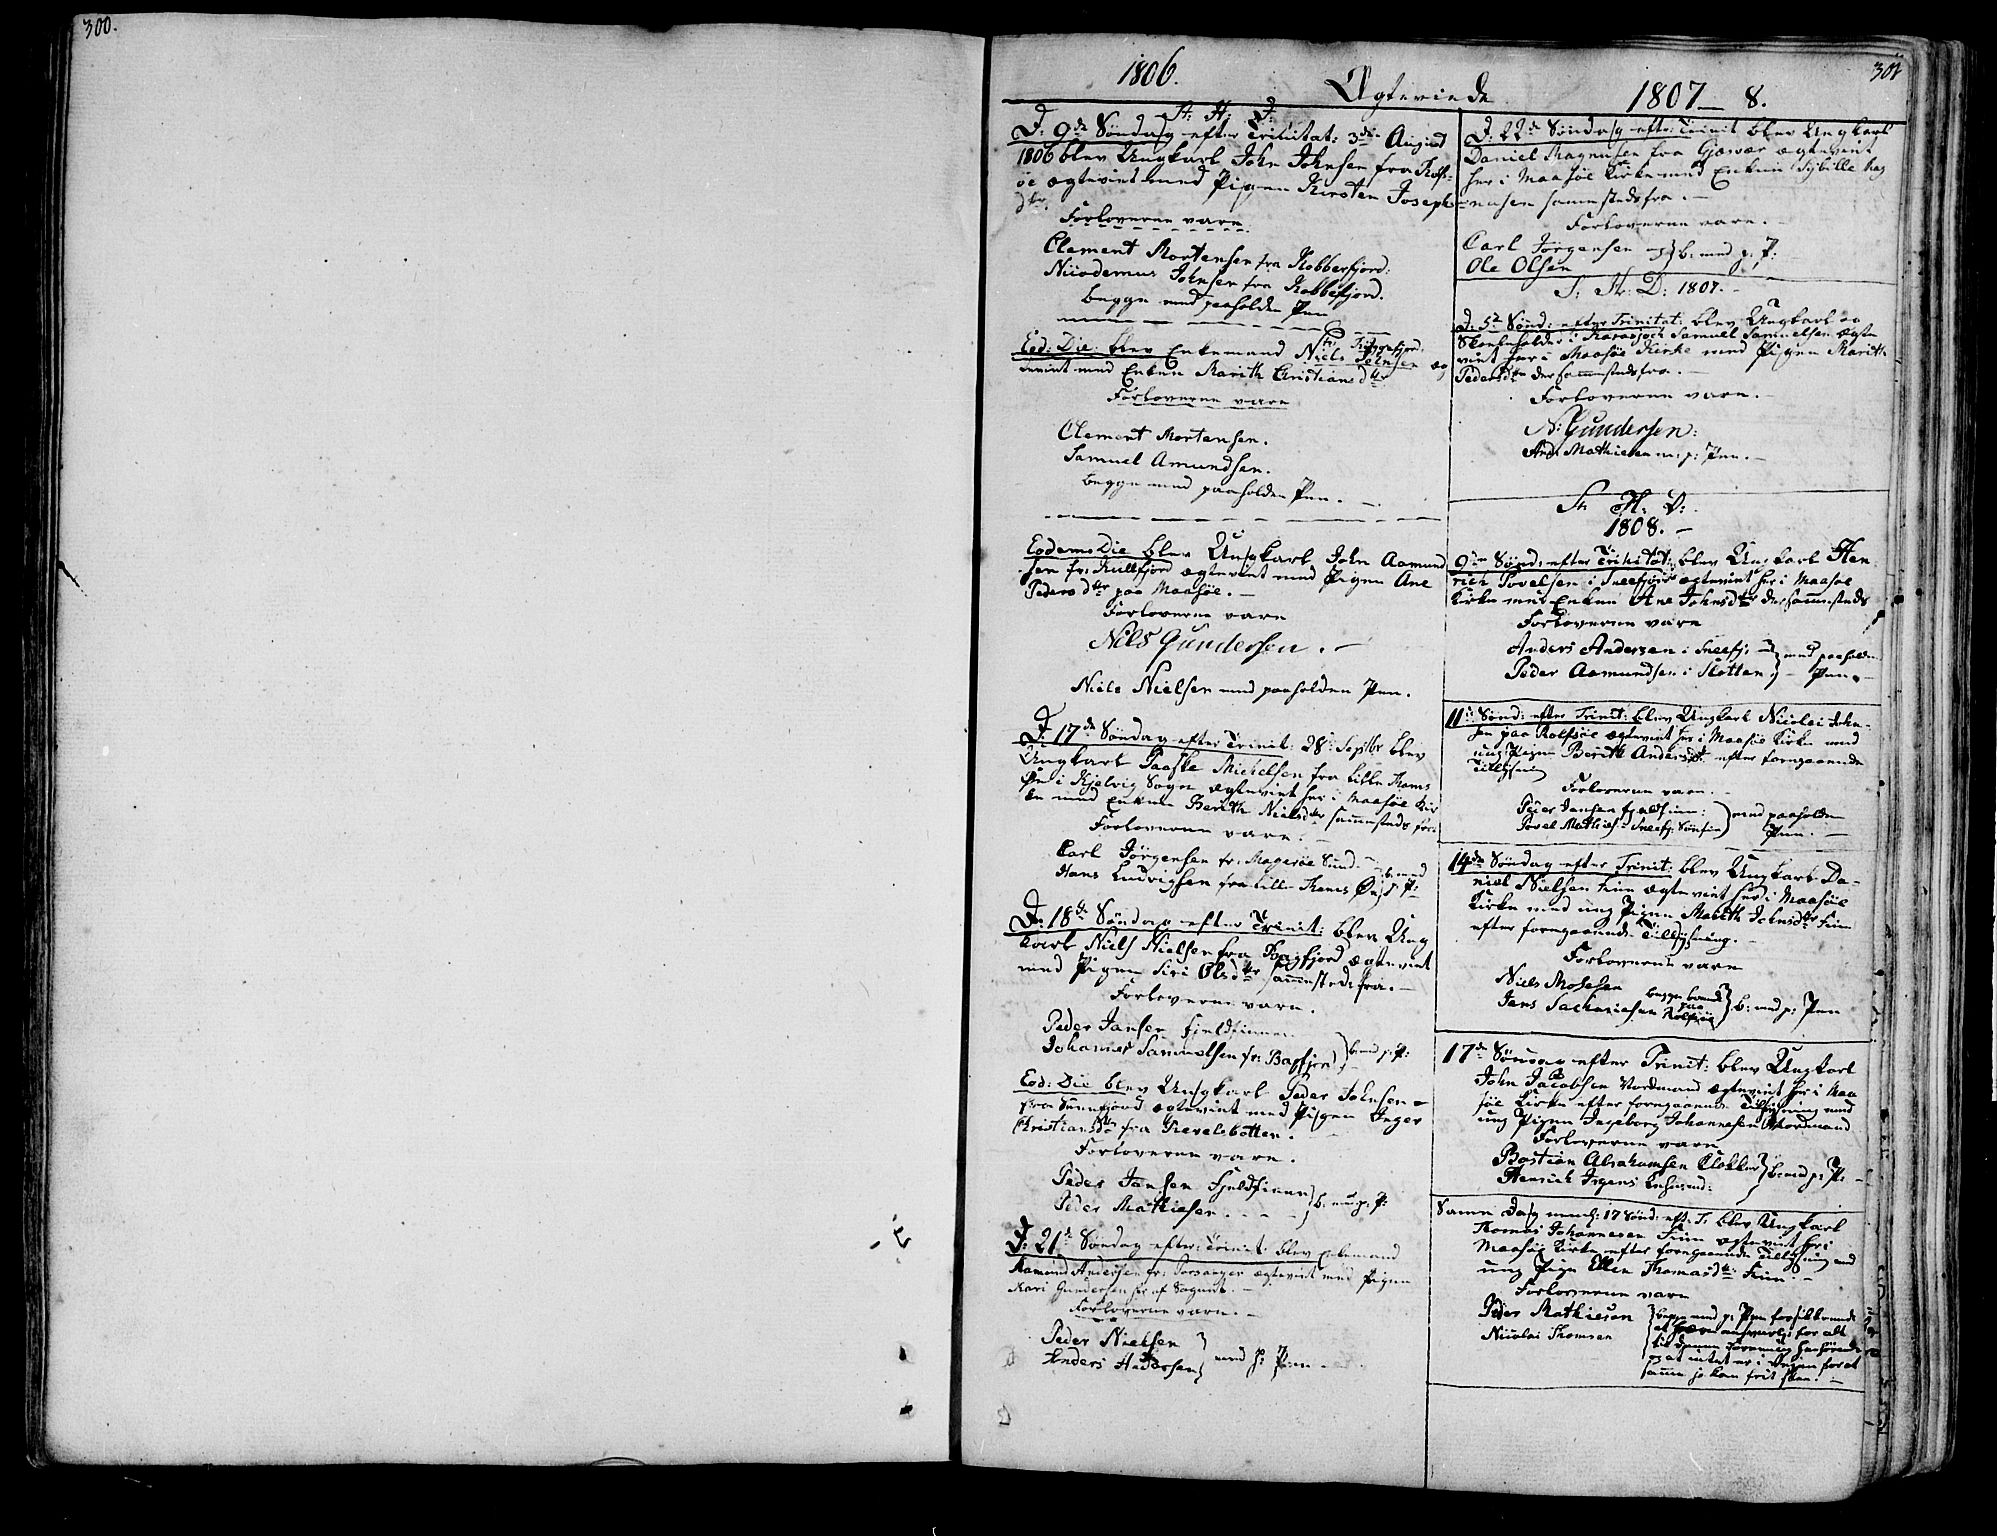 300.
301
1806.
Ægteviede
1807 — 8.
A: H: D:
D: 9de Søndag efter Trinitat: 3die August
1806 blev Ungkarl John Johnsen fra Rolfs-
øe ægteviet med Pigen Kirsten Josephs-
dtr.
Forloverne vare
Clement Mortensen fra Kobberfjord:
Nicodemus Johnsen fra Kobbefjord.
begge med paaholden Pen
Eod: Die: blev Enkemand Niels Johnsen æg
teviet med Enken Marith Christiansdtr
Forloverne vare
Clement Mortensen.
Samuel Amundsen.
begge med paaholden Pen. —
Eodem Die blev Ungkarl John Aamund
sen fr: Kullfjord ægteviet med Pigen Ane
Pedersdtr paa Maasøe. —
Forloverne vare
Niels Gundersen. —
Niels Nielsen med paaholden Pen.
D: 17de Søndag efter Trinit: 28de Septbr blev
Ungkarl Paaske Michelsen fra lille Thams
Øe i Kjelvig Sogn ægteviet her i Maasøe Kir
ke med Enken Berith Nielsdtr sammesteds fra:
Forloverne vare.
Carl Jørgensen fr: Magerøe Sund. —
Hans Ludvigsen fra lille Thams Øe } b: med p: P:
D: 18de Søndag efter Trinit: blev Ung
karl Niels Nielsen fra Bagfjord ægteviet
med Pigen Siri Olsdtr sammestedsfra. —
Forloverne vare.
Peder Jansen Fjeldfinn
Johannes Samuelsen fr: Bagfjord } b: med p: P:
Eod: Die blev Ungkarl Peder Johnsen
fra Sneefjord ægteviet med Pigen Inger
Christiansdtr fra Revelsbotten.
Forloverne vare.
Peder Jansen Fjeldfinn
Peder Mathiesen. - - - } b: med p: P:
D: 21de Søndag efter Trinit: blev Enkemand
Aamund Andersen fr: Porsanger ægteviet med Pigen
Kari Gundersen her af Sognet. —
Forloverne vare. —
Peder Nielsen
Anders Andersen } med p: Pen.
D: 22de Søndag efter Trinit blev Ungkarl
Daniel Magnusen fra Gjesvær ægteviet
her i Maasøe Kirke med Enken Sybille Ras
musen sammestedsfra. —
Forloverne vare. —
Carl Jørgensen og
Ole Olsen } b: med p: P:
A: H: D: 1807. —
D: 5te Sønd: efter Trinitat: blev Ungkarl og
Skoleholder i Karasjok Samuel Samuelsen ægte
viet her i Maasøe Kirke med Pigen Marith
Pedersdtr dersammestedsfra. —
Forloverne vare. —
N: Gundersen:
And: Mathiesen m: p: Pen. —
A: H: D:
1808. —
9de Sønd: efter Trinitat: blev Ungkarl Hen
rich Povelsen i Sneefjord ægteviet her i Maasøe
Kirke med Enken Ane Johnsdtr dersammesteds
Forloverne vare
Anders Andersen i Sneefj: og
Peder Aamundsen i Slotten } med paaholden Pen. —
11te Sønd: efter Trinit: blev Ungkarl Nicolai John-
sen paa Rolfsøe ægteviet her i Maasøe Kirke med
ung Pigen Berith Andersdtr efter foregaaende
Tillysning
Forloverne vare. —
Peder Jansen Fjeldfinn:
Povel Mathies: i Sneefj: Søefinn } med paaholden Pen. —
14de Søndag efter Trinit: blev Ungkarl Da-
niel Nielsen Finn ægteviet her i Maasøe
Kirke med ung Pigen Marith Johnsdtr Finn
efter foregaaende Tillysning. —
Forloverne vare
Niels Mosesen
Jens Sachariasen begge boende paa Rolfsøe } b: med p: Pen
17de Søndag efter Trinit: blev Ungkarl
John Jacobsen Nordmand ægteviet her i Maa
søe Kirke efter foregaaende Tillysning med
ung Pigen Ingeborg Johannesen Nordmand
Forloverne vare
Bastian Abrahamsen Klokker
Henrich Irgens Lehnsmd: } b: med p: P: —
Samme Dag nemlig: 17 Sønd: eft: T: blev Ungkarl
Thomas Johannesen Finn ægteviet her i
Maasøe Kirke efter foregaaende Tillysning med
ung Pige Ellen Thomasdtr Finn: —
Forloverne vare
Peder Mathiesen
Nicolai Thomsen
} begge med p: Pen forsikkrende
at være ansvarl: for alt
til denne Forening henhørende
og at intet er i Veien for at
samme jo kan frit skee. —